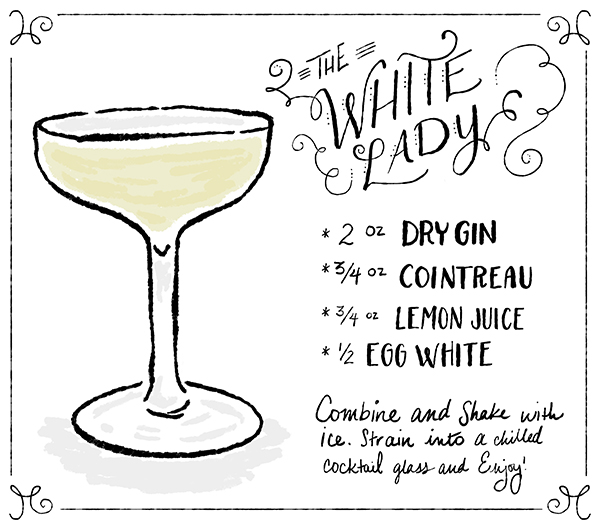 THE
WHITE
LADY
* 2 oz DRY GIN
* 3/4 oz COINTREAU
* 3/4 oz LEMON JUICE
* 1/2 EGG WHITE
Combine and Shake with
ice. Strain into a chilled
cocktail glass and Enjoy!